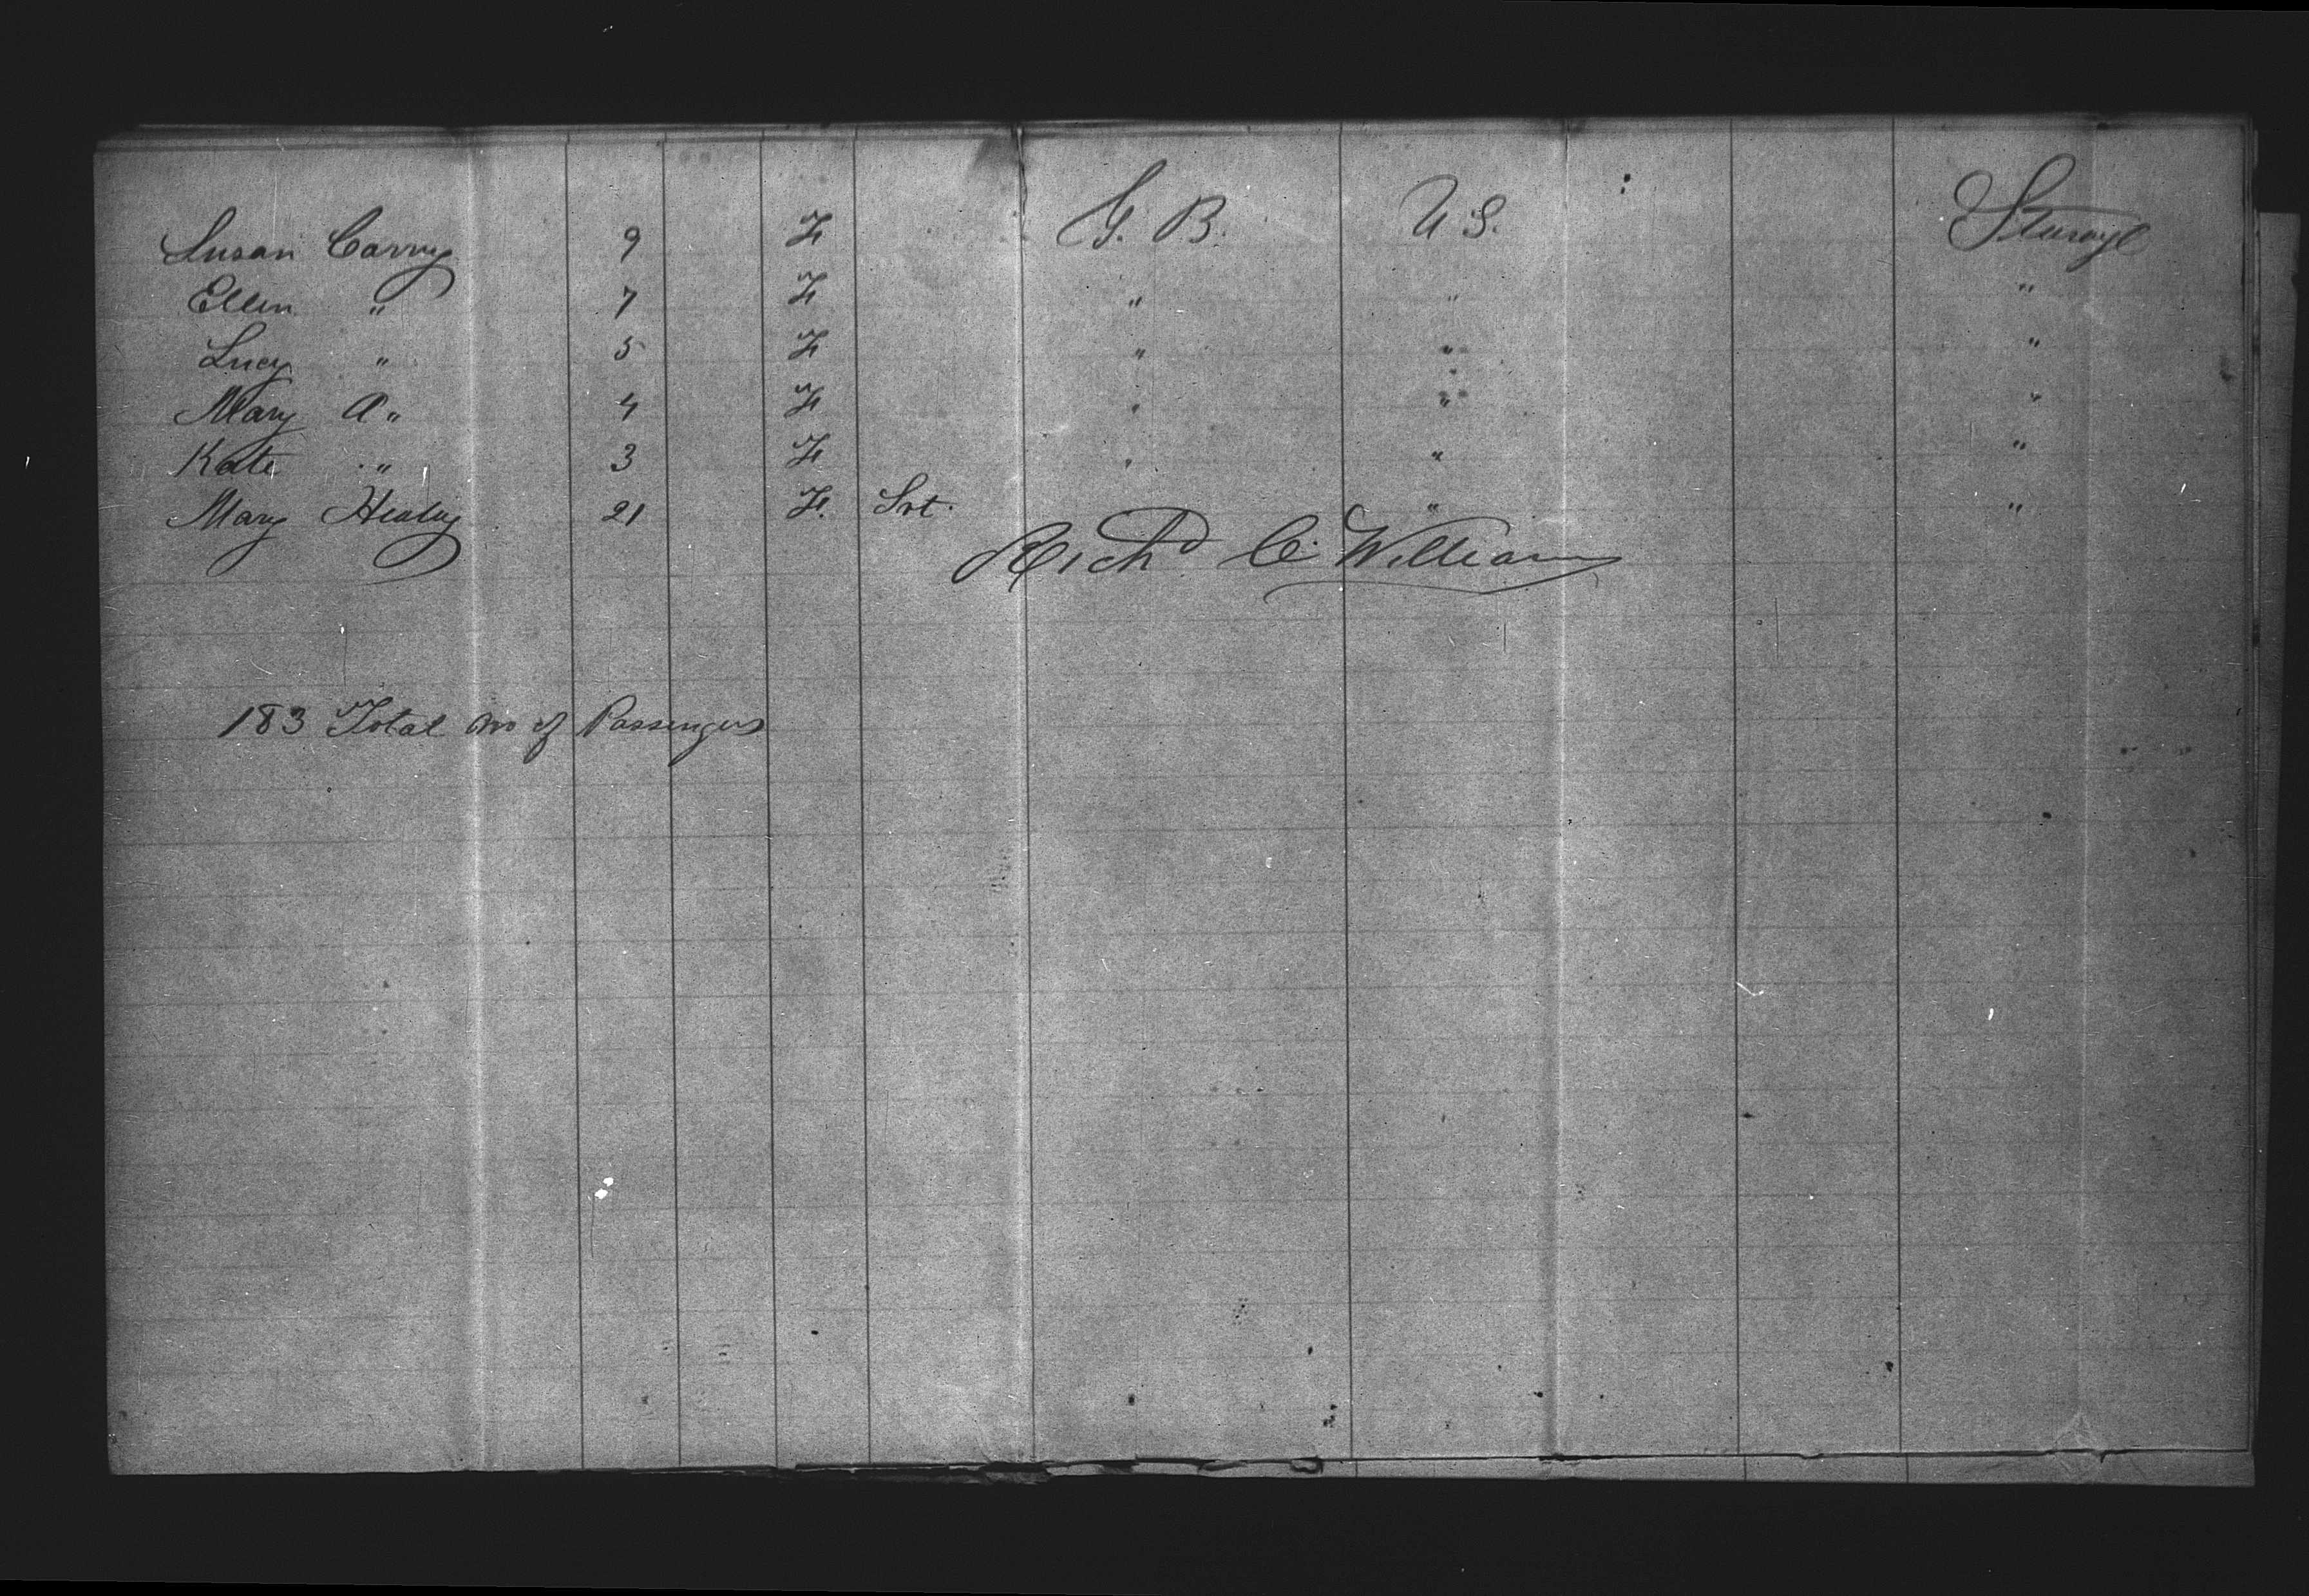 Susan Carry 9 F G. B. U S. Steerage
Ellen " 7 F " " "
Lucy " 5 F " " "
Mary A " 4 F " " "
Kate " 3 F " " "
Mary Healey 21 F. Svt. " "
Rich^d C. Williams
183 Total no of Passengers